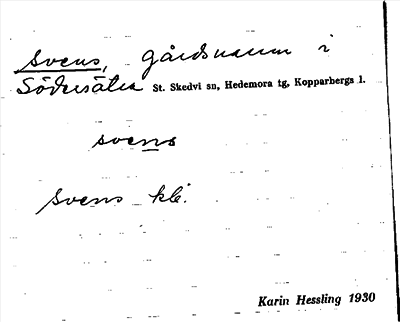 Svens, gårdsnamn i
Södersätra St. Skedvi sn, Hedemora tg, Kopparbergs l.
svens
Svens kle.
Karin Hessling 1930